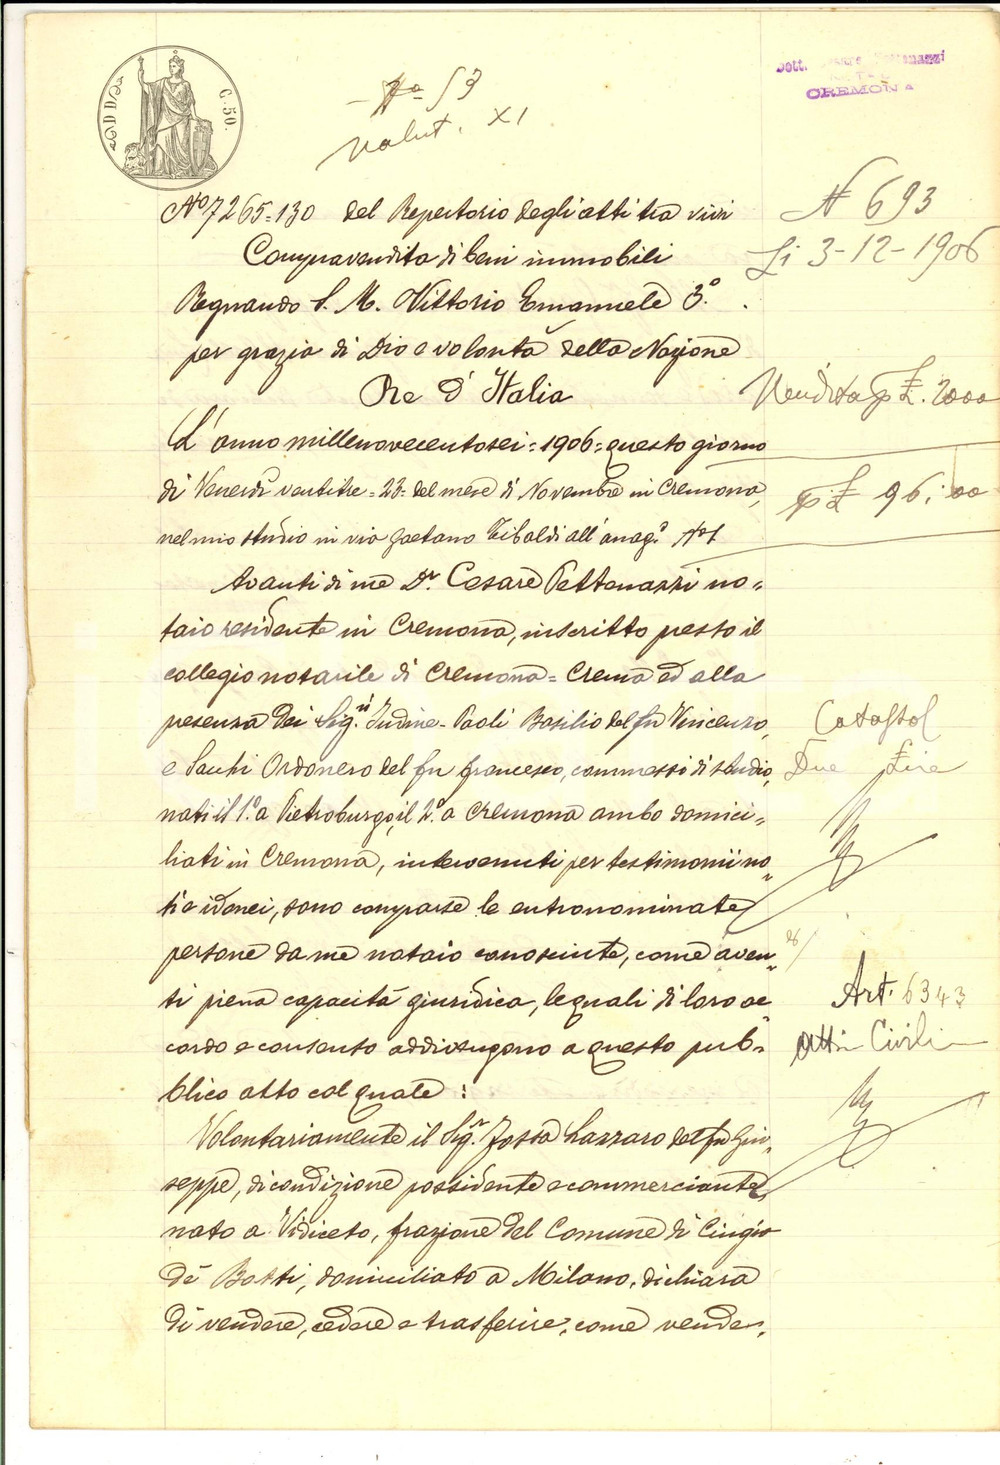 C. 50.
Nº 53
valut. XI
Dott. Cesare Pettenazzi
CREMONA
Nº 7265=130 del Repertorio degli atti tra vivi
N 693
Compravendita di beni immobili
Li 3-12-1906
Regnando S. M. Vittorio Emanuele 3.º
per grazia di Dio e volontà della Nazione
Re d'Italia
Vendita p £. 2000
L'anno millenovecentosei =1906= questo giorno
di Venerdì ventitre =23= del mese di Novembre in Cremona,
p £ 96.00
nel mio studio in via Gaetano Tibaldi all'anag.º Nº 1
Avanti di me Dr. Cesare Pettenazzi no=
taio residente in Cremona, inscritto presso il
collegio notarile di Cremona=Crema ed alla
presenza dei Sig.ri Paoli Basilio del fu Vincenzo,
Catastol
e Sachi Ordonero del fu Francesco, commessi di studio,
Due Lire
nati il 1.º a Pietroburgo, il 2.º a Cremona ambo domici=
liati in Cremona, intervenuti per testimonii no=
ti e idonei, sono comparse le entronominate
persone da me notaio conosciute, come aven=
ti piena capacità giuridica, le quali di loro ac=
Art. 6343
cordo e consenso addivengono a questo pub=
atti Civili
blico atto col quale:
Volontariamente il Sig.r Lazzaro del fu Giu=
seppe, di condizione possidente e commerciante,
nato a Vidiceto, frazione del Comune di Cingia
de' Botti, domiciliato a Milano, dichiara
di vendere, cedere e trasferire, come vende,